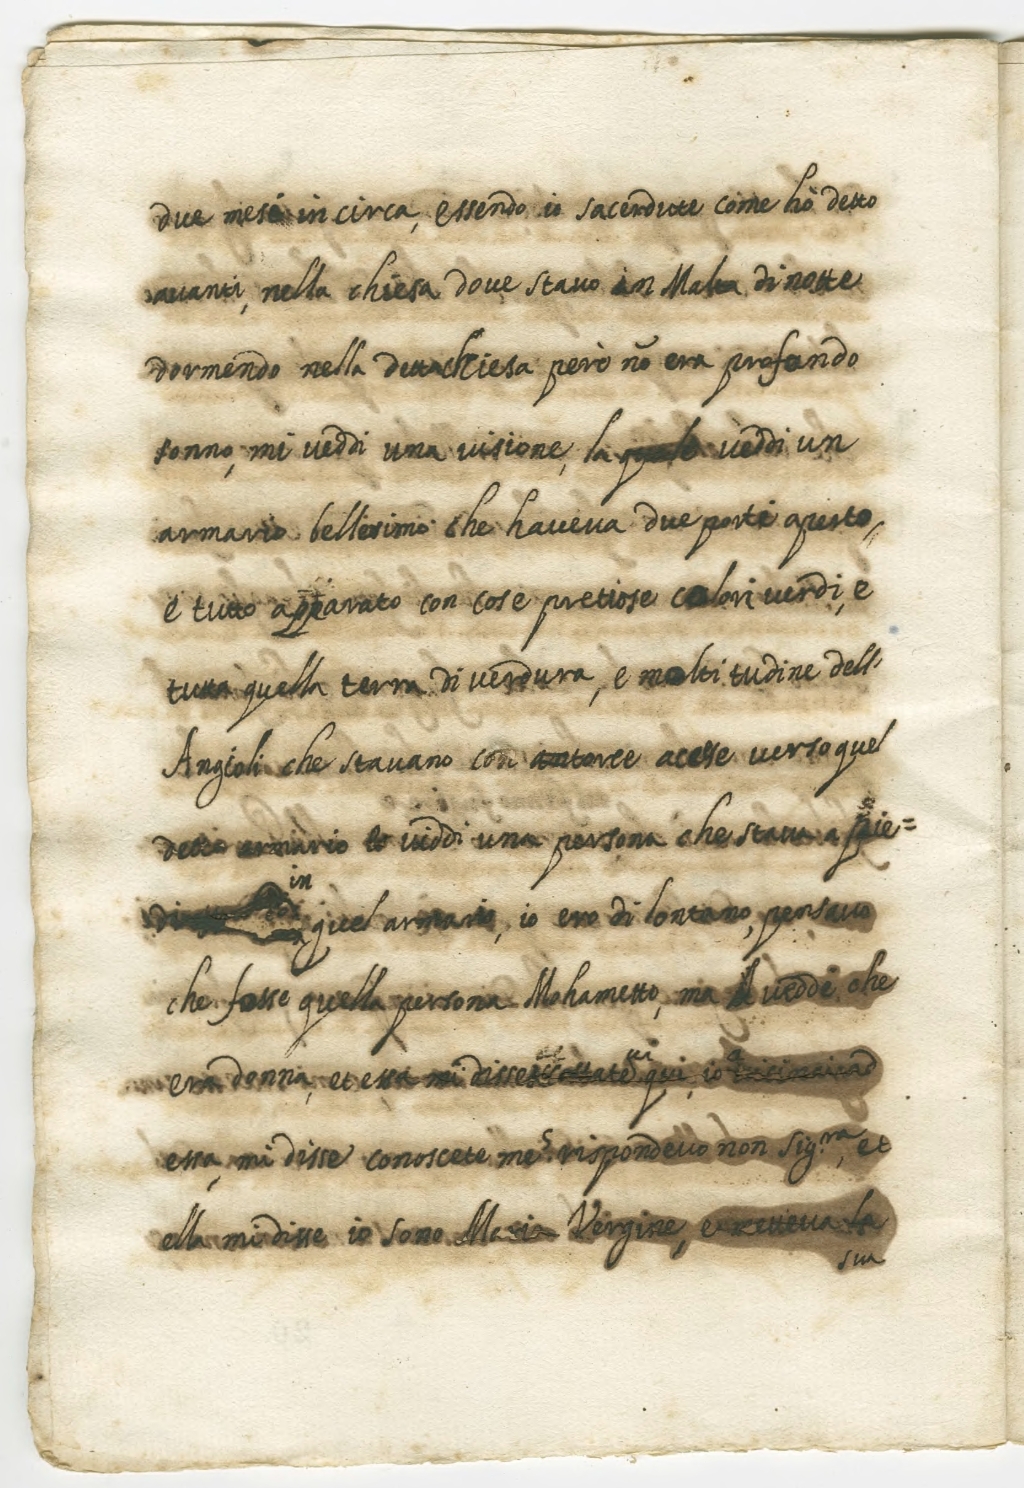 due mesi in circa, essendo io sacerdote come hò detto
avanti, nella chiesa dove stavo in Malta di notte
dormendo nella detta chiesa però nõ era profondo
sonno, mi veddi una visione, la quale veddi un
armario bellissimo che haveva due porte aperto,
e tutto apparato con cose pretiose colori verdi, e
tutta quella terra di verdura, e moltitudine dell'
Angioli che stavano con antorce acese verso quel
detto armario lo viddi una persona che stava a pie=
di in quel armario, io ero di lontano, pensavo
che fosse quella persona Mohametto, ma veddi che
era donna, et essa mi disse qui, io
essa, mi disse conoscete me? rispondevo non Sig.ra, et
ella mi disse io sono Maria Vergine, e teneva la
sua